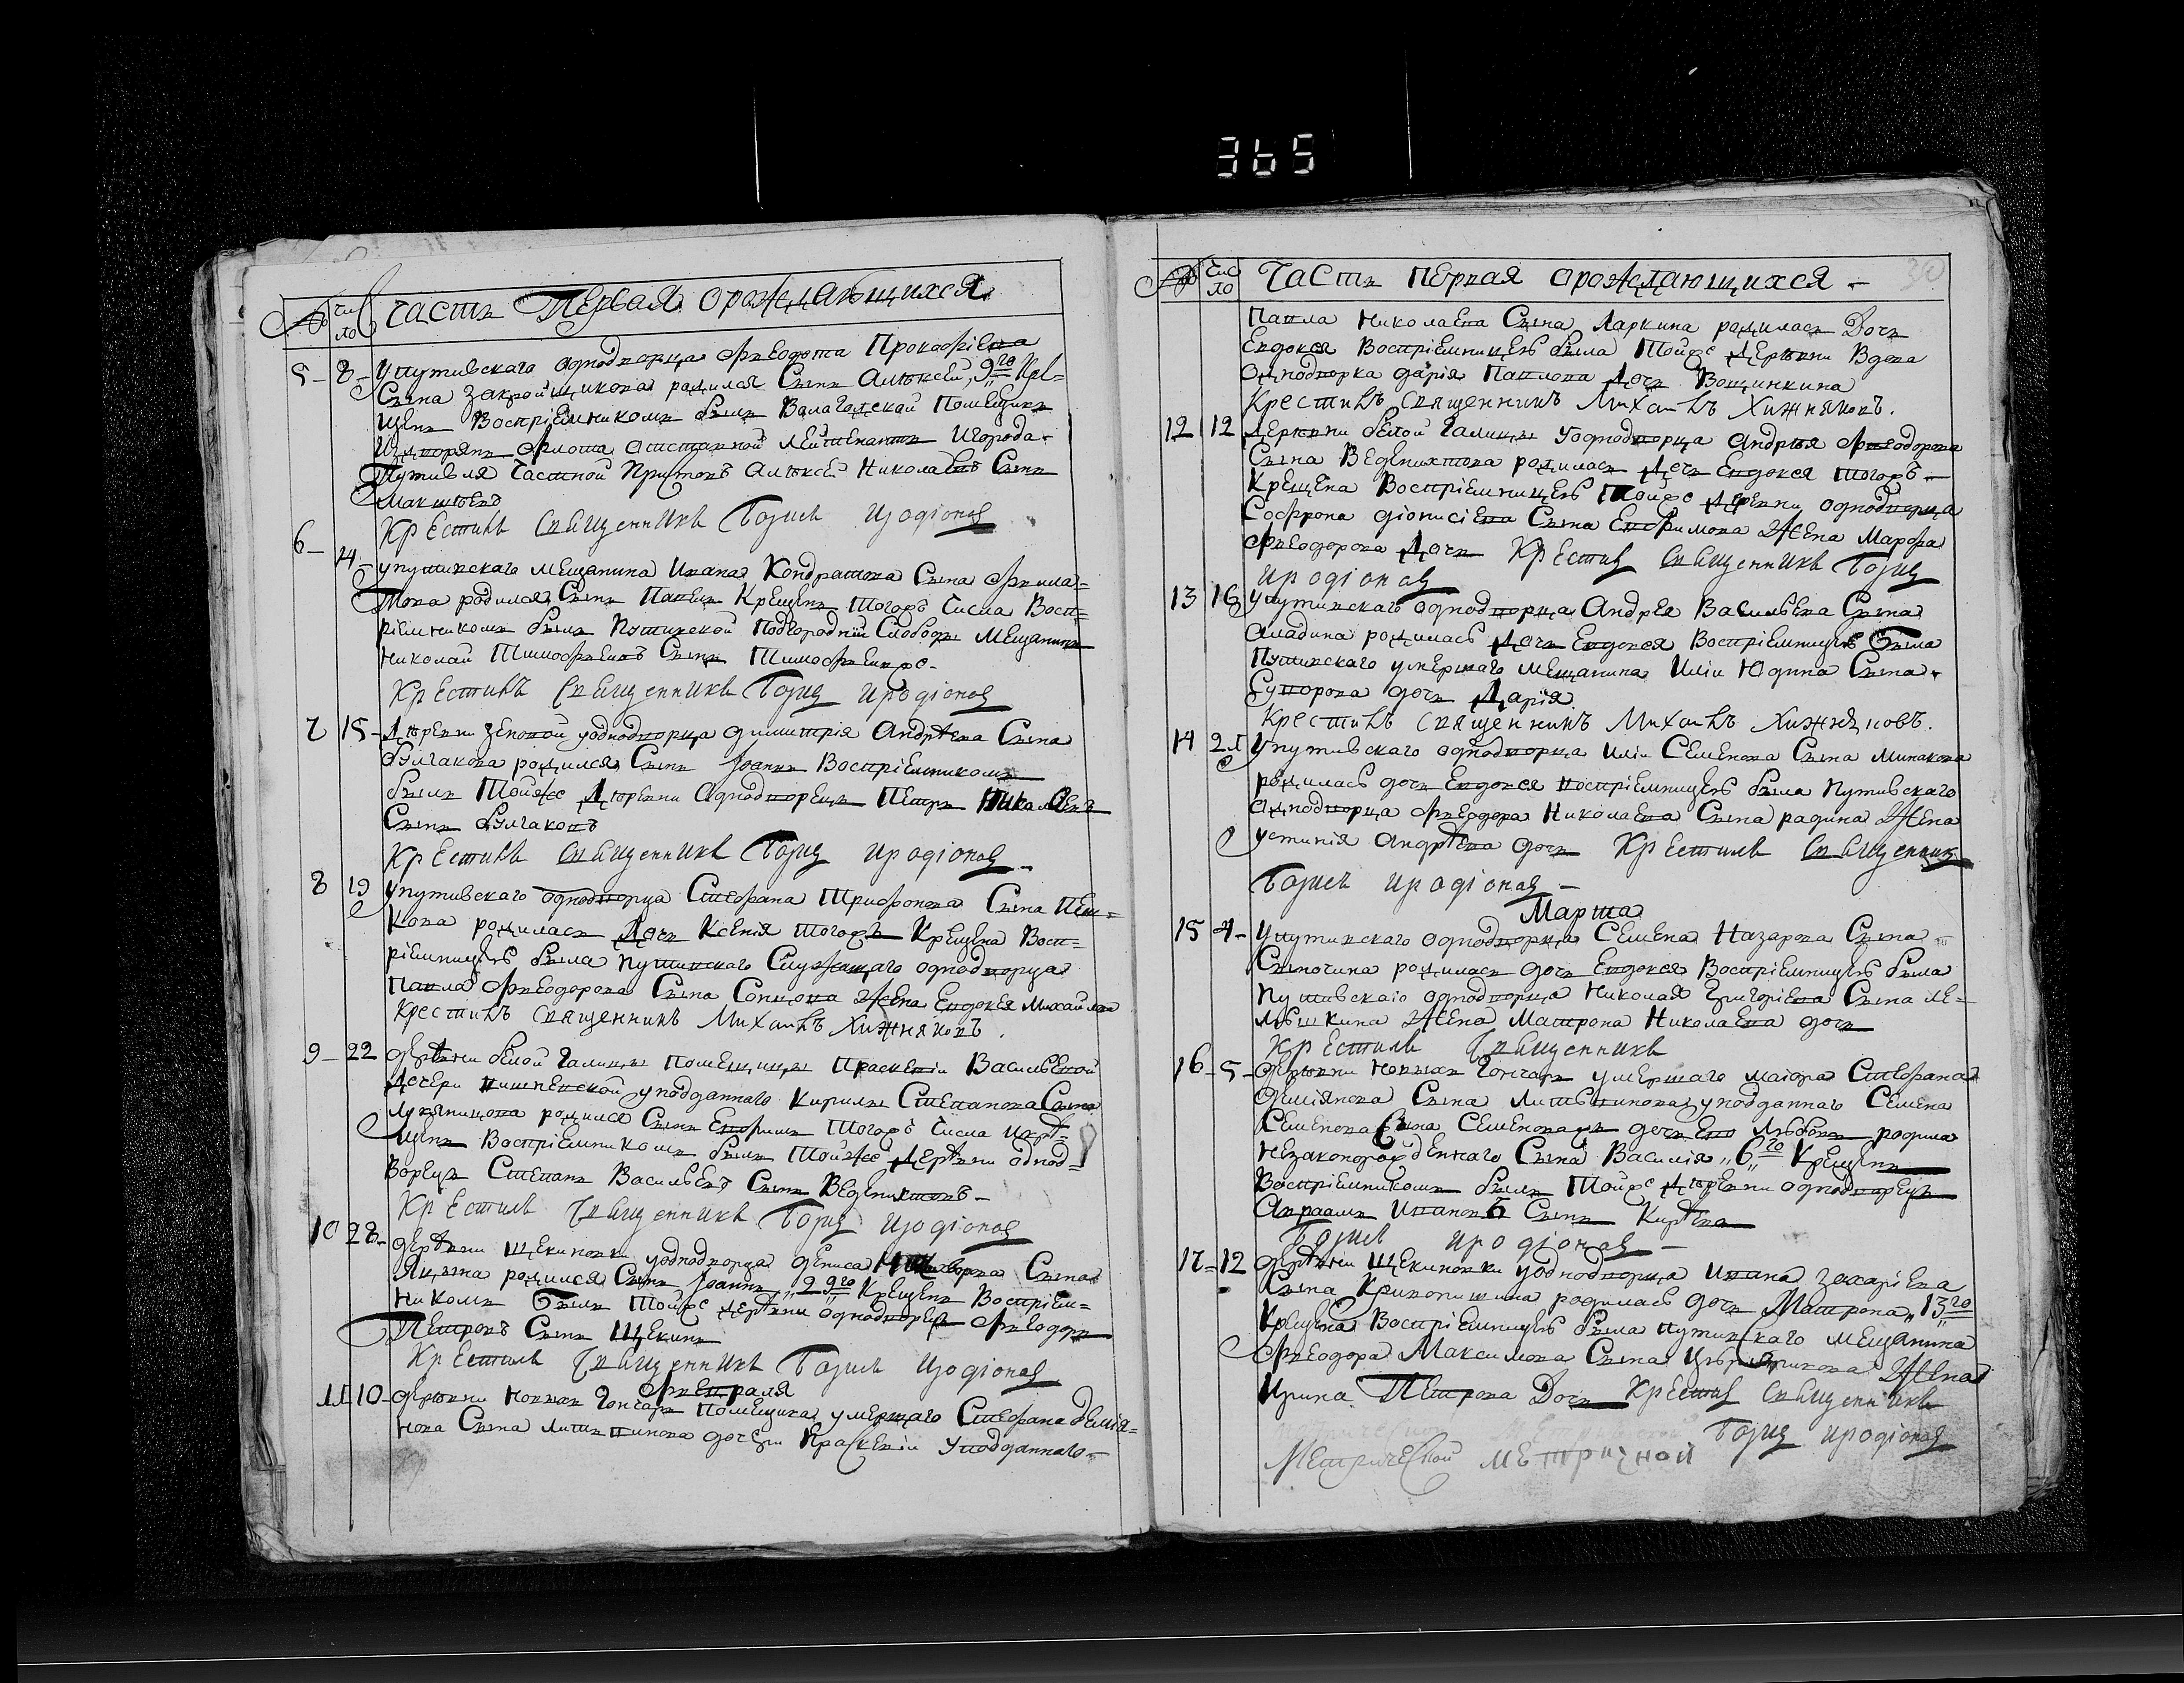 365
№ число Часть Первая о рождающихся
5 8 Упутивскаго однодворца Феодота Прокофіева
Сына Закройщикова родился Сынъ Алексей, 9го кре=
щенъ Воспріемникомъ былъ Помещикъ
флота лейтенантъ Игорода
Путивля Частной Приставъ Алексей Николаевъ Сынъ

Крестилъ Священникъ Борисъ Иродіоновъ
6 14 Упутивскаго мещанина Ивана Кондратова Сына Фила=
това родился Сынъ Павелъ Крещенъ тогожъ Числа Восп=
ріемникомъ былъ Путивской Подгородній Слободы Мещанинъ
Николай Тимофеевъ Сынъ
Крестивъ Священникъ Борис Иродіонов
7 15 Деревни Зеновой уоднодворца Димитрія Андрѣева Сына
Булгакова родился Сынъ Іоаннъ Воспріемникомъ
былъ Тойже Деревни Однодворецъ Петръ Николаевъ
Сынъ Булгаковъ
Крестивъ Священникъ Борис Иродіонов
8 19 Упутивскаго однодворца Стефана Трифонова Сына Пеш=
кова родилась Дочь Ксенія тогожъ Крещена Восп=
ріемницею была Путивскаго Служащаго однодворца
Павла Феодорова Сына Жена Евдокея Михайлова
Крестилъ Священникъ Михаилъ Хижняковъ.
9 22 Деревни белой Галицы помещицы Праскевіи Василевой
Дочери уподданнаго Кирилы Степанова Сына
родился Сынъ Евфимъ Тогожъ Числа икрѣ=
щенъ Воспріемникомъ былъ Тойже Деревни однод=
ворецъ Степанъ Васильевъ Сынъ Веденихтовъ
Крестилъ Священникъ Борис Иродіонов
10 28 Деревни Щекиновки уоднодворца Дениса Сына
Яцына родился Сынъ Іоаннъ, 29го Крещенъ Воспріем=
никомъ былъ Тойже деревни однодворецъ Феодоръ
Петровъ Сынъ Щекинъ
Крестилъ Священникъ Борисъ Иродіонов
Февраля
11 10 Деревни Новыхъ Гончаръ Помещика умершаго Стефана Демія=
нова Сына Литвинова дочери Праскевіи Уподданнаго
№ число Часть первая о рождающихся 30
Павла Николаева Сына Ларкина родилась Дочь
Евдокея Воспріемницею была Тойже Деревни Вдова
Однодворка Дарія Павлова Дочь Вощинкина
Крестилъ Священникъ Михаилъ Хижняковъ.
12 12 Деревни белой Галицы Уоднодворца Андрея Феодорова
Сына Веденихтова родилась Дочь Евдокея тогожъ
Крещена Воспріемницею Тойже Деревни однодворца
Софрона Діонисіева Сына Евфимова Жена Марфа
Феодорова Дочь Крестив Священникъ Борис
Иродіонов
13 16 Упутивскаго однодворца Андрея Васильева Сына
Аладина родилась Дочь Евдокея Воспріемницею была
Путивскаго умершаго мещанина Иліи Юдина Сына
Суворова дочь Дарія.
Крестилъ Священникъ Михаилъ Хижняковъ.
14 21 Упутивскаго однодворца Иліи Семенова Сына Минакова
родилась дочь Евдокея воспріемницею была Путивскаго
однодворца Феодора Николаева Сына радина Жена
Устинія Андрѣева дочь Крестилъ Священникъ
Борисъ Иродіонов
Марта
15 4 Упутивскаго однодворца Семена Назарова Сына
родилась дочь Евдокея Воспріемницею была
Путивскаго однодворца Николая Григоріева Сына ле=
вшкина Жена Матрона Николаева дочь
Крестилъ Священникъ
16 5 Деревни Новыхъ Гончаръ умершаго маіора Стефана
Деміянова Сына Литвинова уподданнаго Семена
Семенова Сына Семенова дочь его Любовь родила
незаконорожденнаго Сына Василія, 6го Крещенъ
Воспріемникомъ былъ Тойже Деревни однодворецъ
Авраамъ Ивановъ Сынъ Кирѣевъ
Борисъ Иродіонов
17 12 Деревни Щекиновки уоднодворца Ивана Захаріева
Сына Кривопишина родилась дочь Матрона, 13го
Крещена Воспріемницею была Путивскаго мещанина
Феодора Максимова Сына Жена
Ирина Петрова Дочь Крестив Священникъ
Борис Иродіонов
Метрической метричной